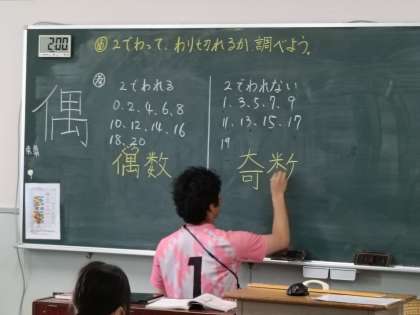 200
問 2でわって、わり切れるか、調べよう。
偶
2でわれる
0.2.4.6.8
10.12.14.16
18.20
偶数
2でわれない
1.3.5.7.9
11.13.15.17
19
奇数
1